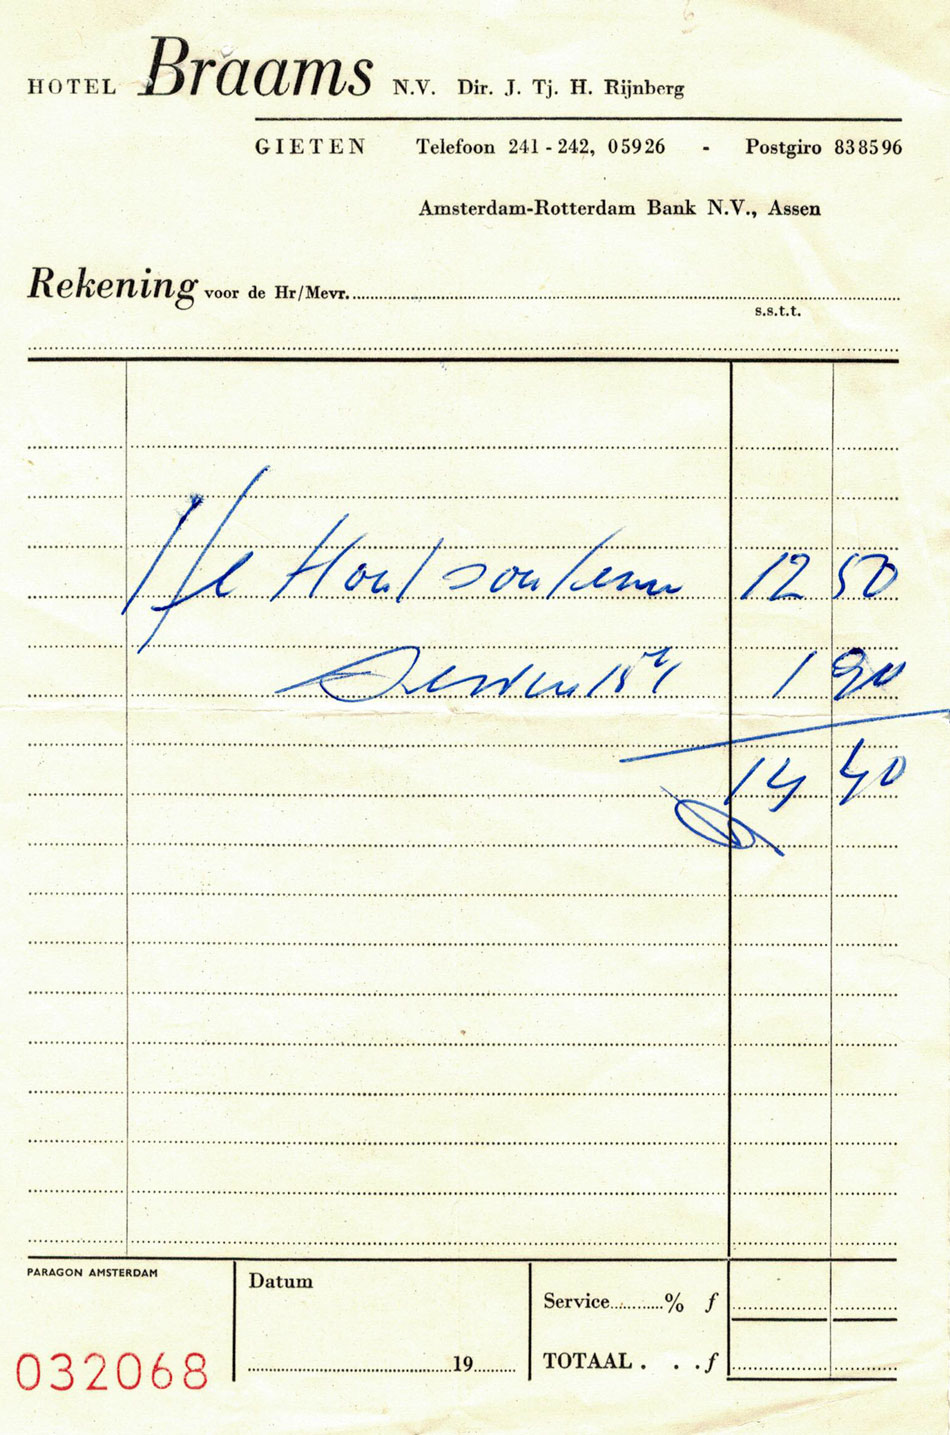 HOTEL Braams N.V. Dir. J. Tj. H. Rijnberg
GIETEN Telefoon 241 - 242, 05926 - Postgiro 838596
Amsterdam-Rotterdam Bank N.V., Assen
Rekening voor de Hr/Mevr.
s.s.t.t.
12 50
15% 1 90
14 40
PARAGON AMSTERDAM
Datum
Service..........% f
19
TOTAAL . . . f
032068